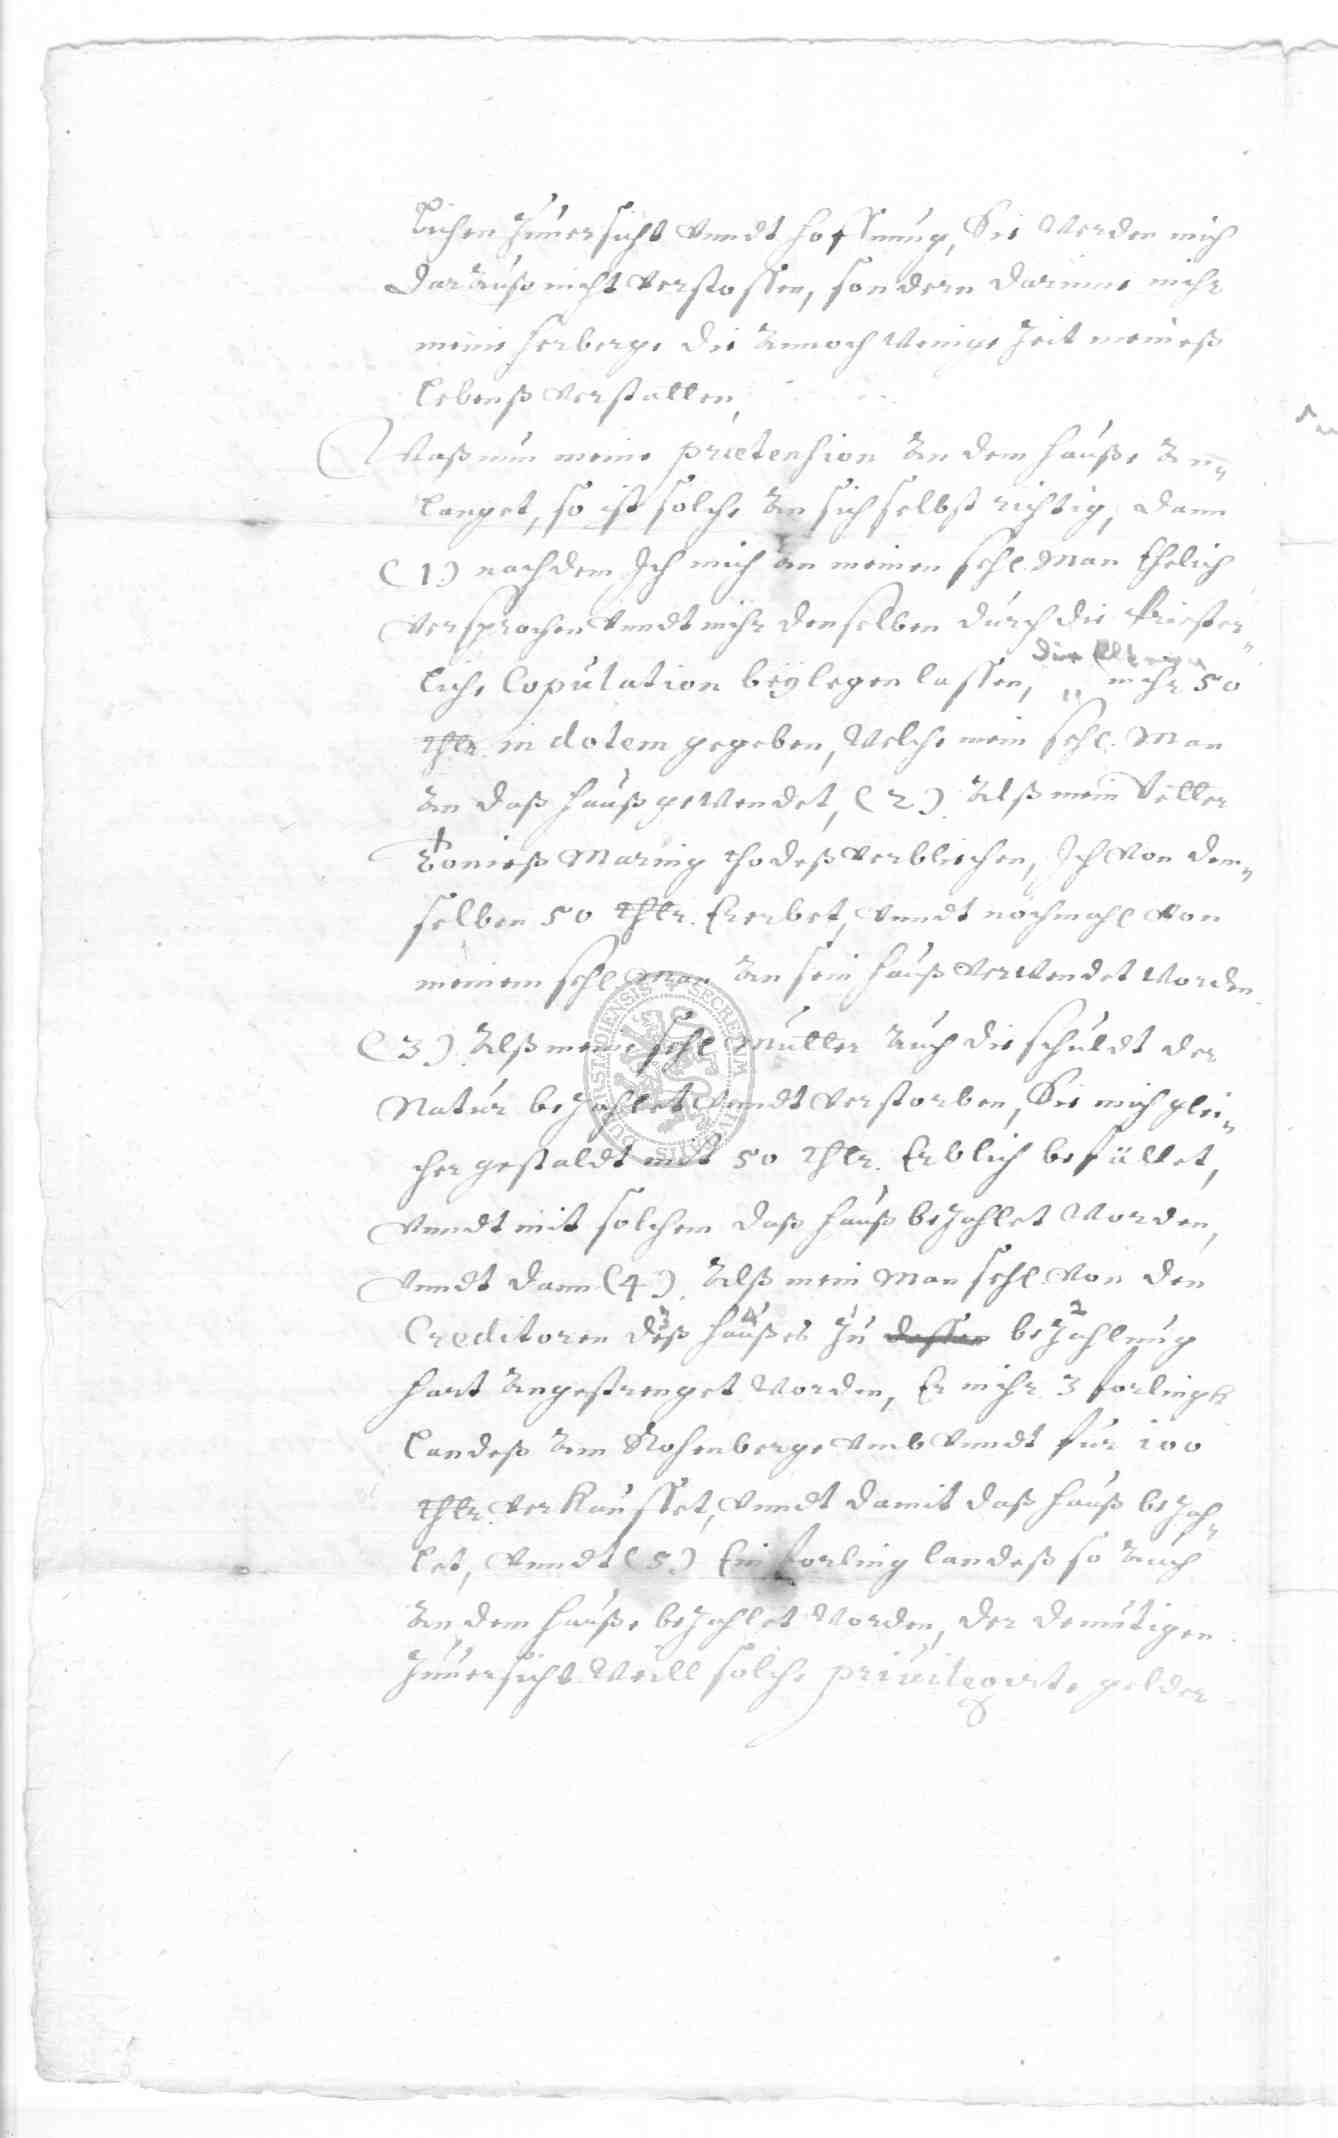 lichen Zuuersicht vnndt hoffnung, Sie werden mich
darauß nicht verstossen, sondern darinne mihr
meine herberge die annoch wenige Zeit meineß
lebenß verstatten,
Waß nun meine prætension an dem hauße an=
langet, so ist solche an sich selbst richtig, dann
(1) nachdem Ich mich an meinen sehl. Man Ehelich
versprochen vnndt mihr denselben durch die Priester=
liche Copulation beÿlegen lassen, die Eltern mihr 50
thlr. in dotem gegeben, welche mein sehl. Man
an daß hauß gewendet, (2). Alß mein Vetter
Tonieß Maring thodeß verblichen, Ich von dem=
selben 50 thlr. Ererbet, vnndt nochmahl von
meinem sehl Man an sein hauß verwendet worden
(3). Alß meine sehl Mutter auch die schuldt der
Natur bezahlet vnndt verstorben, Sie mich glei=
cher gestaldt mit 50 thlr. Erblich befället,
vnndt mit solchem daß hauß bezahlet worden,
vnndt dann (4). Alß mein Man sehl von den
Creditoren deß haußeß zu dessen bezahlung
hart angestrenget worden, Er mihr 3 forlingk
landeß am Rosenberge vmb vnndt für 100
thlr. verkauffet, vnndt damit daß hauß bezah=
let, vnndt (5) Ein forling landeß so auch
an dem hauße bezahlet worden, der demütigen
Zuuersicht weill solche priuilegirte gelder
SECRETUM